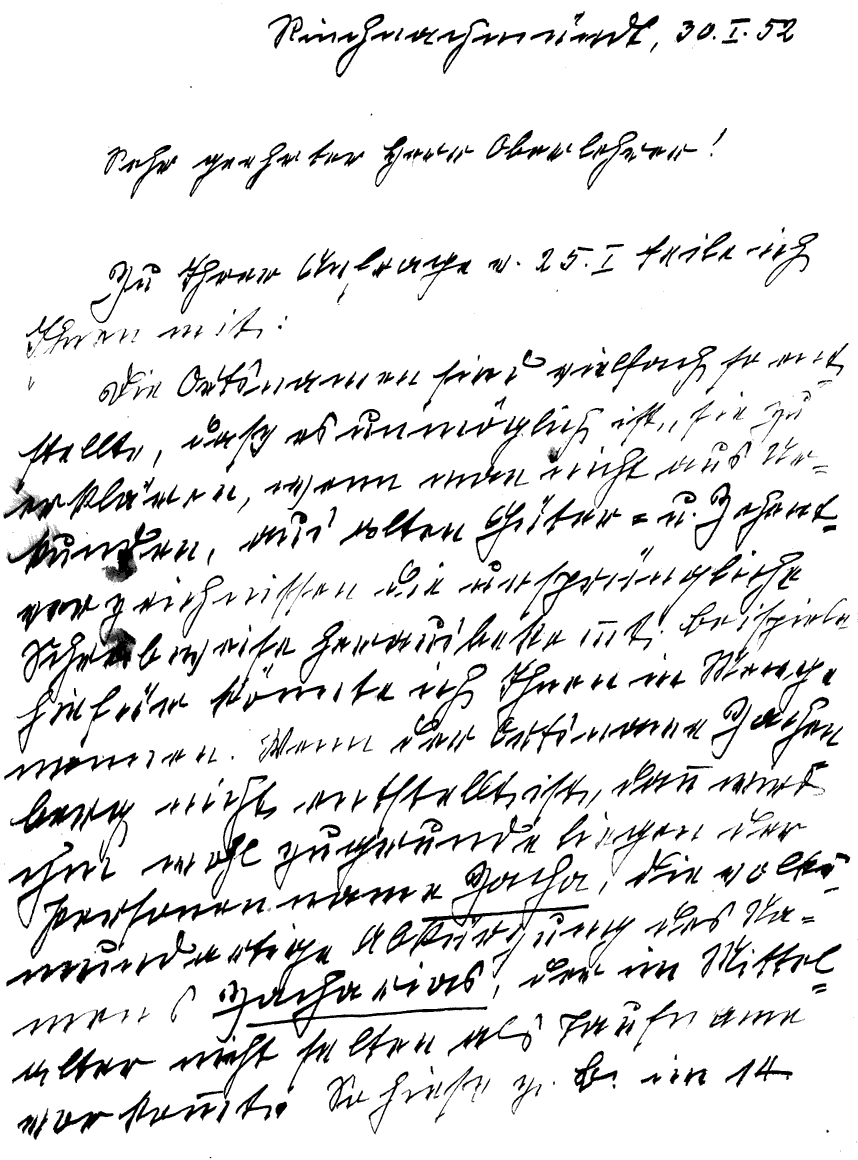 Kirchnachmündt, 30.I.52
Sehr geehrter Herr Oberlehrer!
Zu Ihrer Anfrage v. 25.I teile ich
Ihnen mit:
Die Ortsnamen sind vielfach so ent=
stellt, daß es unmöglich ist, sie zu
erklären, wenn man nicht aus Ur=
kunden, aus alten Güter= u. Zehent=
verzeichnissen die ursprüngliche
Schreibweise herausbekommt. Beispiele
hiefür könnte ich Ihnen in Menge
nennen. Wenn der Ortsname Zachen
berg nicht entstellt ist, dann wird
ihm wohl zugrunde liegen der
Personenname Zacha, die volks=
mundartige Abkürzung des Na=
mens Zacharias, der im Mittel=
alter nicht selten als Taufname
vorkommt. So hieß z. B. im 14.